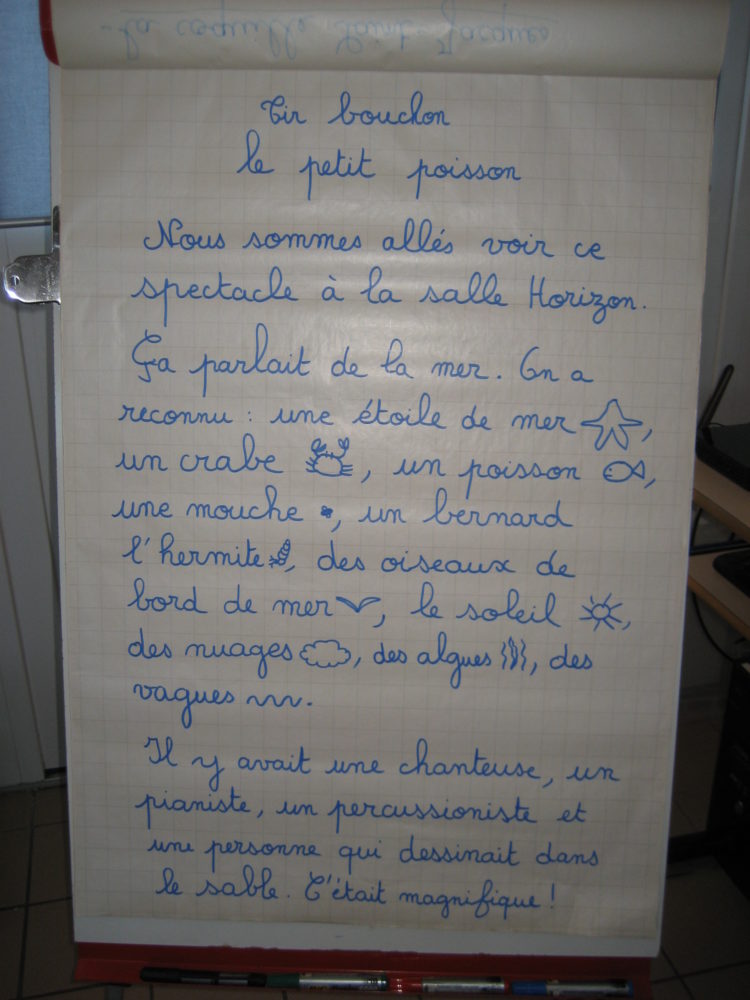 - la coquille Saint-Jacques
Tir bouchon
le petit poisson
Nous sommes allés voir ce
spectacle à la salle Horizon.
Ça parlait de la mer. On a
reconnu : une étoile de mer ,
un crabe , un poisson ,
une mouche , un bernard
l'hermite , des oiseaux de
bord de mer , le soleil ,
des nuages , des algues , des
vagues .
Il y avait une chanteuse, un
pianiste, un percussioniste et
une personne qui dessinait dans
le sable. C'était magnifique !